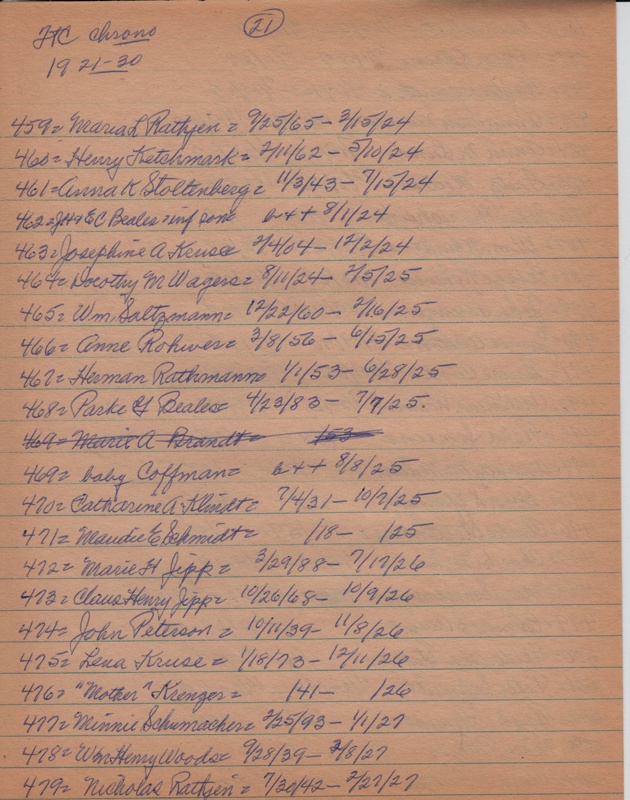 FtC chrono
21
1921-30
459= Maria L Rathjen = 9/25/65 - 3/15/24
460= Henry Ketchmark = 2/11/62 - 5/10/24
461= Anna K Stoltenberg = 11/3/43 - 7/15/24
462= JH+EC Beales = inf son b++ 8/1/24
463= Josephine A Keuse 2/4/04 - 12/2/24
464= Dorothy M Wagers = 8/11/24 - 2/5/25
465= Wm Saltzmann = 12/22/60 - 2/16/25
466= Anne Rohwer = 3/8/56 - 6/15/25
467= Herman Rathmann = 1/1/53 - 6/28/25
468= Parke G Beales = 4/23/83 - 7/7/25.
469= Marie A Brandt = 153
469= baby Coffman = b++ 8/8/25
470= Catharine A Klindt = 7/4/31 - 10/7/25
471= Maudie E Schmidt = /18- /25
472= Marie H Jipp = 3/29/88 - 7/17/26
473= Claus Henry Jipp = 10/26/68 - 10/9/26
474= John Peterson = 10/11/39 - 11/8/26
475= Lena Kruse = 1/18/73 - 12/11/26
476= "Mother" Krenzer = /41- /26
477= Minnie Schumacher = 2/25/93 - 1/1/27
478= Wm Henry Woods = 9/28/39 - 2/8/27
479= Nicholas Rathjen = 7/30/42 - 2/27/27